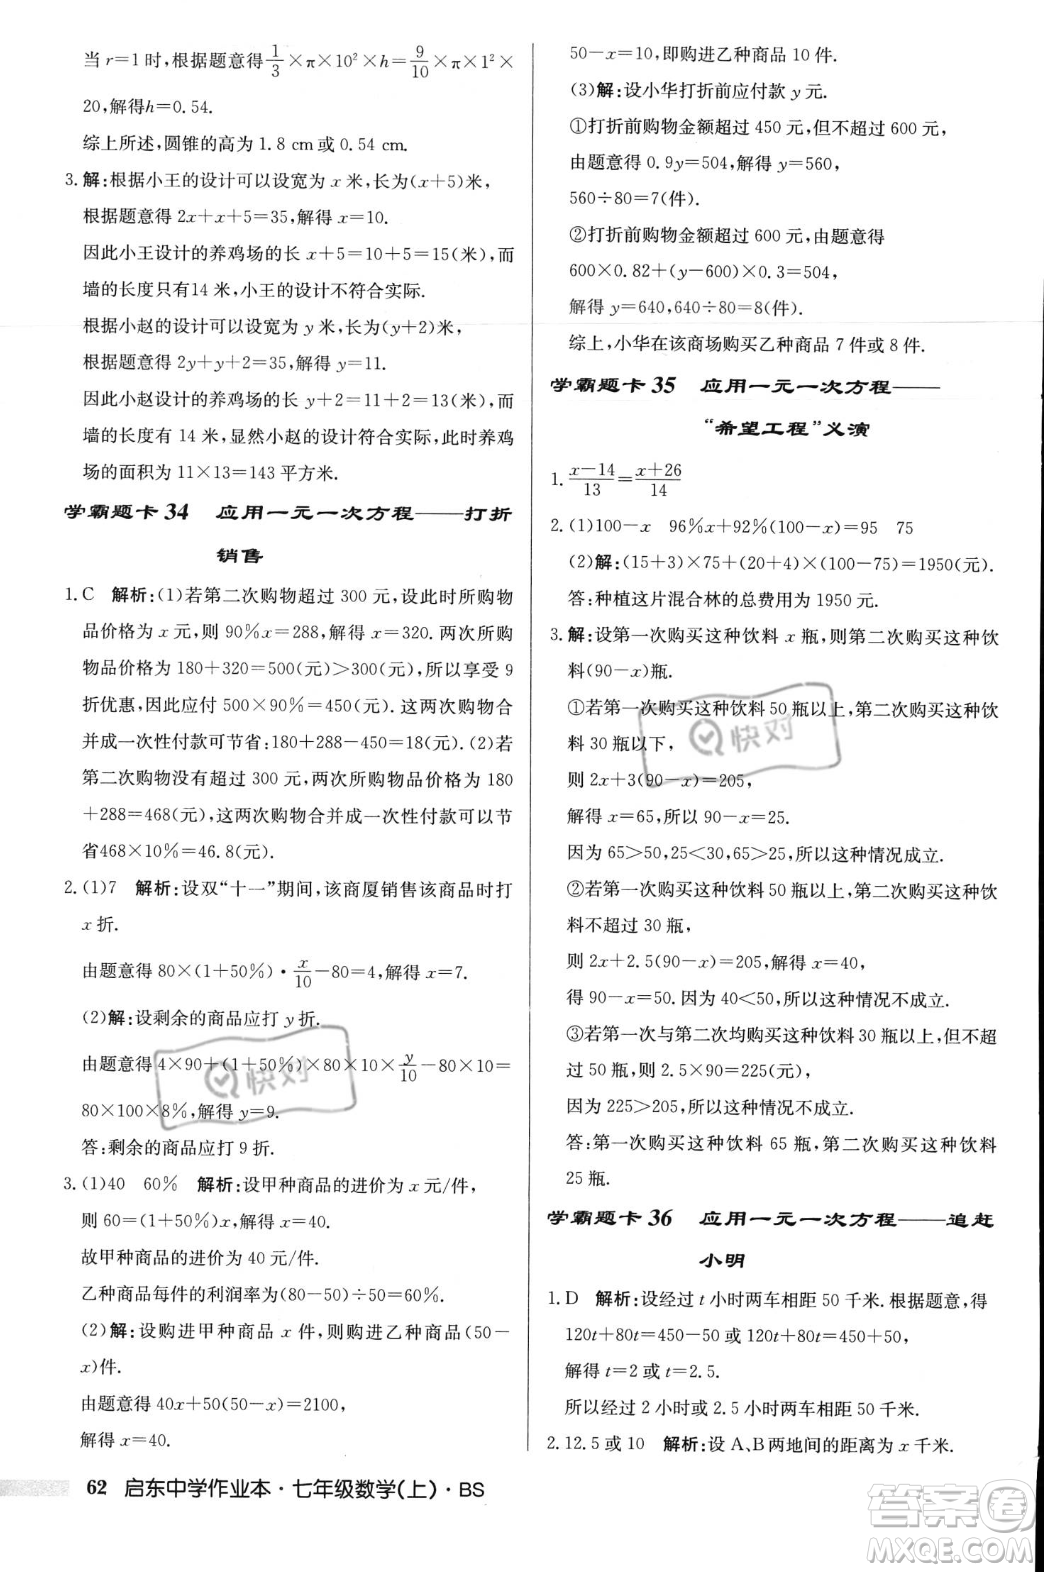 当 r=1 时,根据题意得1/3×π×10²×h=9/10×π×1²×
20,解得h=0.54.
综上所述,圆锥的高为 1.8 cm或0.54 cm.
3. 解:根据小王的设计可以设宽为 x 米,长为(x+5)米,
根据题意得 2x+x+5=35,解得 x=10.
因此小王设计的养鸡场的长 x+5=10+5=15(米),而
墙的长度只有14 米,小王的设计不符合实际.
根据小赵的设计可以设宽为 y 米,长为(y+2)米,
根据题意得 2y+y+2=35,解得 y=11.
因此小赵设计的养鸡场的长 y+2=11+2=13(米),而
墙的长度为 14 米,显然小赵的设计符合实际,此时养鸡
场的面积为 11×13=143 平方米.
学霸题卡 34 应用一元一次方程——打折
销售
1. C 解析:(1)若第二次购物超过 300 元,设此时所购物
品价格为 x 元,则 90%x=288,解得 x=320. 两次所购
物品价格为 180+320=500(元)>300(元),所以享受 9
折优惠,因此应付 500×90%=450(元). 两次购物合
并成一次性付款可节省:180+288-450=18(元).(2)若
第二次购物没有超过 300 元,两次所购物品价格为 180
+288=468(元),这两次购物合并成一次性付款可以节
省468×10%=46.8(元).
2. (1)7 解析:设双“十一”期间,该商厦销售该商品时打
x 折.
由题意得 80×(1+50%)·x/10-80=4,解得 x=7.
(2)解:设剩余的商品应打 y 折.
由题意得4×90+(1+50%)×80×96×y/10-80×100=
80×100×8%,解得 y=9.
答:剩余的商品应打 9 折.
3. (1)40 60% 解析:设甲种商品的进价为 x 元/件,
则 60=(1+50%)x,解得 x=40.
故甲种商品的进价为 40 元/件.
乙种商品每件的利润率为(80-50)÷50=60%.
(2)解:设购进甲种商品 x 件,则购进乙种商品(50-
x)件.
由题意得 40x+50(50-x)=2100,
解得 x=40.
50-x=10,即购进乙种商品 10 件.
(3)解:设小华打折前应付款 y 元.
①打折前购物金额超过 450 元,但不超过 600 元,
由题意得 0.9y=504,解得 y=560,
560÷80=7(件).
②打折前购物金额超过 600 元,由题意得
600×0.82+(y-600)×0.3=504,
解得 y=640,640÷80=8(件).
综上,小华在该商场购买乙种商品 7 件或 8 件.
学霸题卡 35 应用一元一次方程——
“希望工程”义演
1. x-14/13=x+26/14
2. (1)100-x 96%x+92%(100-x)=95 75
(2)解:(15+3)×75+(20+4)×(100-75)=1950(元).
答:种植这片混合林的总费用为 1950 元.
3. 解:设第一次购买这种饮料 x 瓶,则第二次购买这种饮
料(90-x)瓶.
①若第一次购买这种饮料50 瓶以上,第二次购买这种饮
料 30 瓶以下,
则 2x+3(90-x)=205,
解得 x=65,所以 90-x=25.
因为 65>50,25<30,65>25,所以这种情况成立.
②若第一次购买这种饮料50瓶以上,第二次购买这种饮
料不超过 30 瓶,
则 2x+2.5(90-x)=205,解得 x=40,
得 90-x=50. 因为 40<50,所以这种情况不成立.
③若第一次与第二次均购买这种饮料 30 瓶以上,但不超
过 50 瓶,则 2.5×90=225(元),
因为 225>205,所以这种情况不成立.
答:第一次购买这种饮料 65 瓶,第二次购买这种饮料
25 瓶.
学霸题卡 36 应用一元一次方程——追赶
小明
1. D 解析:设经过 t 小时两车相距 50 千米. 根据题意,得
120t+80t=450-50 或 120t+80t=450+50,
解得 t=2 或 t=2.5.
所以经过 2 小时或 2.5 小时两车相距 50 千米.
2. 12.5 或 10 解析:设 A、B 两地间的距离为 x 千米.
62 启东中学作业本·七年级数学(上)·BS
快对
快对
答案圈
MXQE.COM